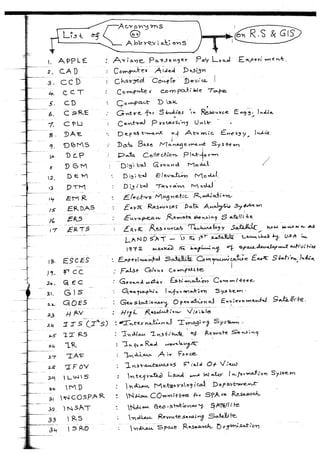 Acronyms
List of
(or)
Abbreviations
on R.S & GIS
1. APPLE : Ariane Passenger Pay Load Experiment.
2. CAD : Computer Aided Design
3. CCD : Charged Couple Device
4. CCT : Computer compatible Tape
5. CD : Compact Disk
6. CSRE : Centre for Studies in Resource Engg, India
7. CPU : Central Processing Unit
8. DAE : Department of Atomic Energy, India
9. DBMS : Data Base Management System
10. DCP : Data Collection Platform
11. DGM : Digital Ground Model
12. DEM : Digital Elevation Model
13. DTM : Digital Terrain Model
14. EMR : Electro Magnetic Radiation
15. ERDAS : Earth Resources Data Analysis System
16. ERS : European Remote Sensing Satellite
17. ERTS : Earth Resources Technology Satellite, now known as
LANDSAT – is the 1st satellite launched by USA in
1972 marked the beginning of space development activities
18. ESCES : Experimental Satellite Communication Earth Station, India
19. FCC : False Colour Composite
20. GEC : Ground water Estimation Committee.
21. GIS : Geographic Information System.
22. GOES : Geostationary Operational Environmental Satellite.
23. HRV : High Resolution Visible
24. IIS (I²S) : International Imaging System.
25. IIRS : Indian Institute of Remote Sensing
26. IR : Infra Red wavelength
27. IAF : Indian Air Force
28. IFOV : Instantaneous Field Of View
29. ILWIS : Integrated Land and Water Information System
30. IMD : Indian Meteorological Department
31. INCOSPAR : INdian COmmittee for SPAce Research
32. INSAT : INdian Geo-stationary SATellite
33. IRS : Indian Remote sensing Satellite
34. ISRO : Indian Space Research Organisation